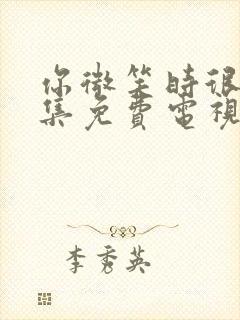 你微笑時很
集免費電視
李秀英